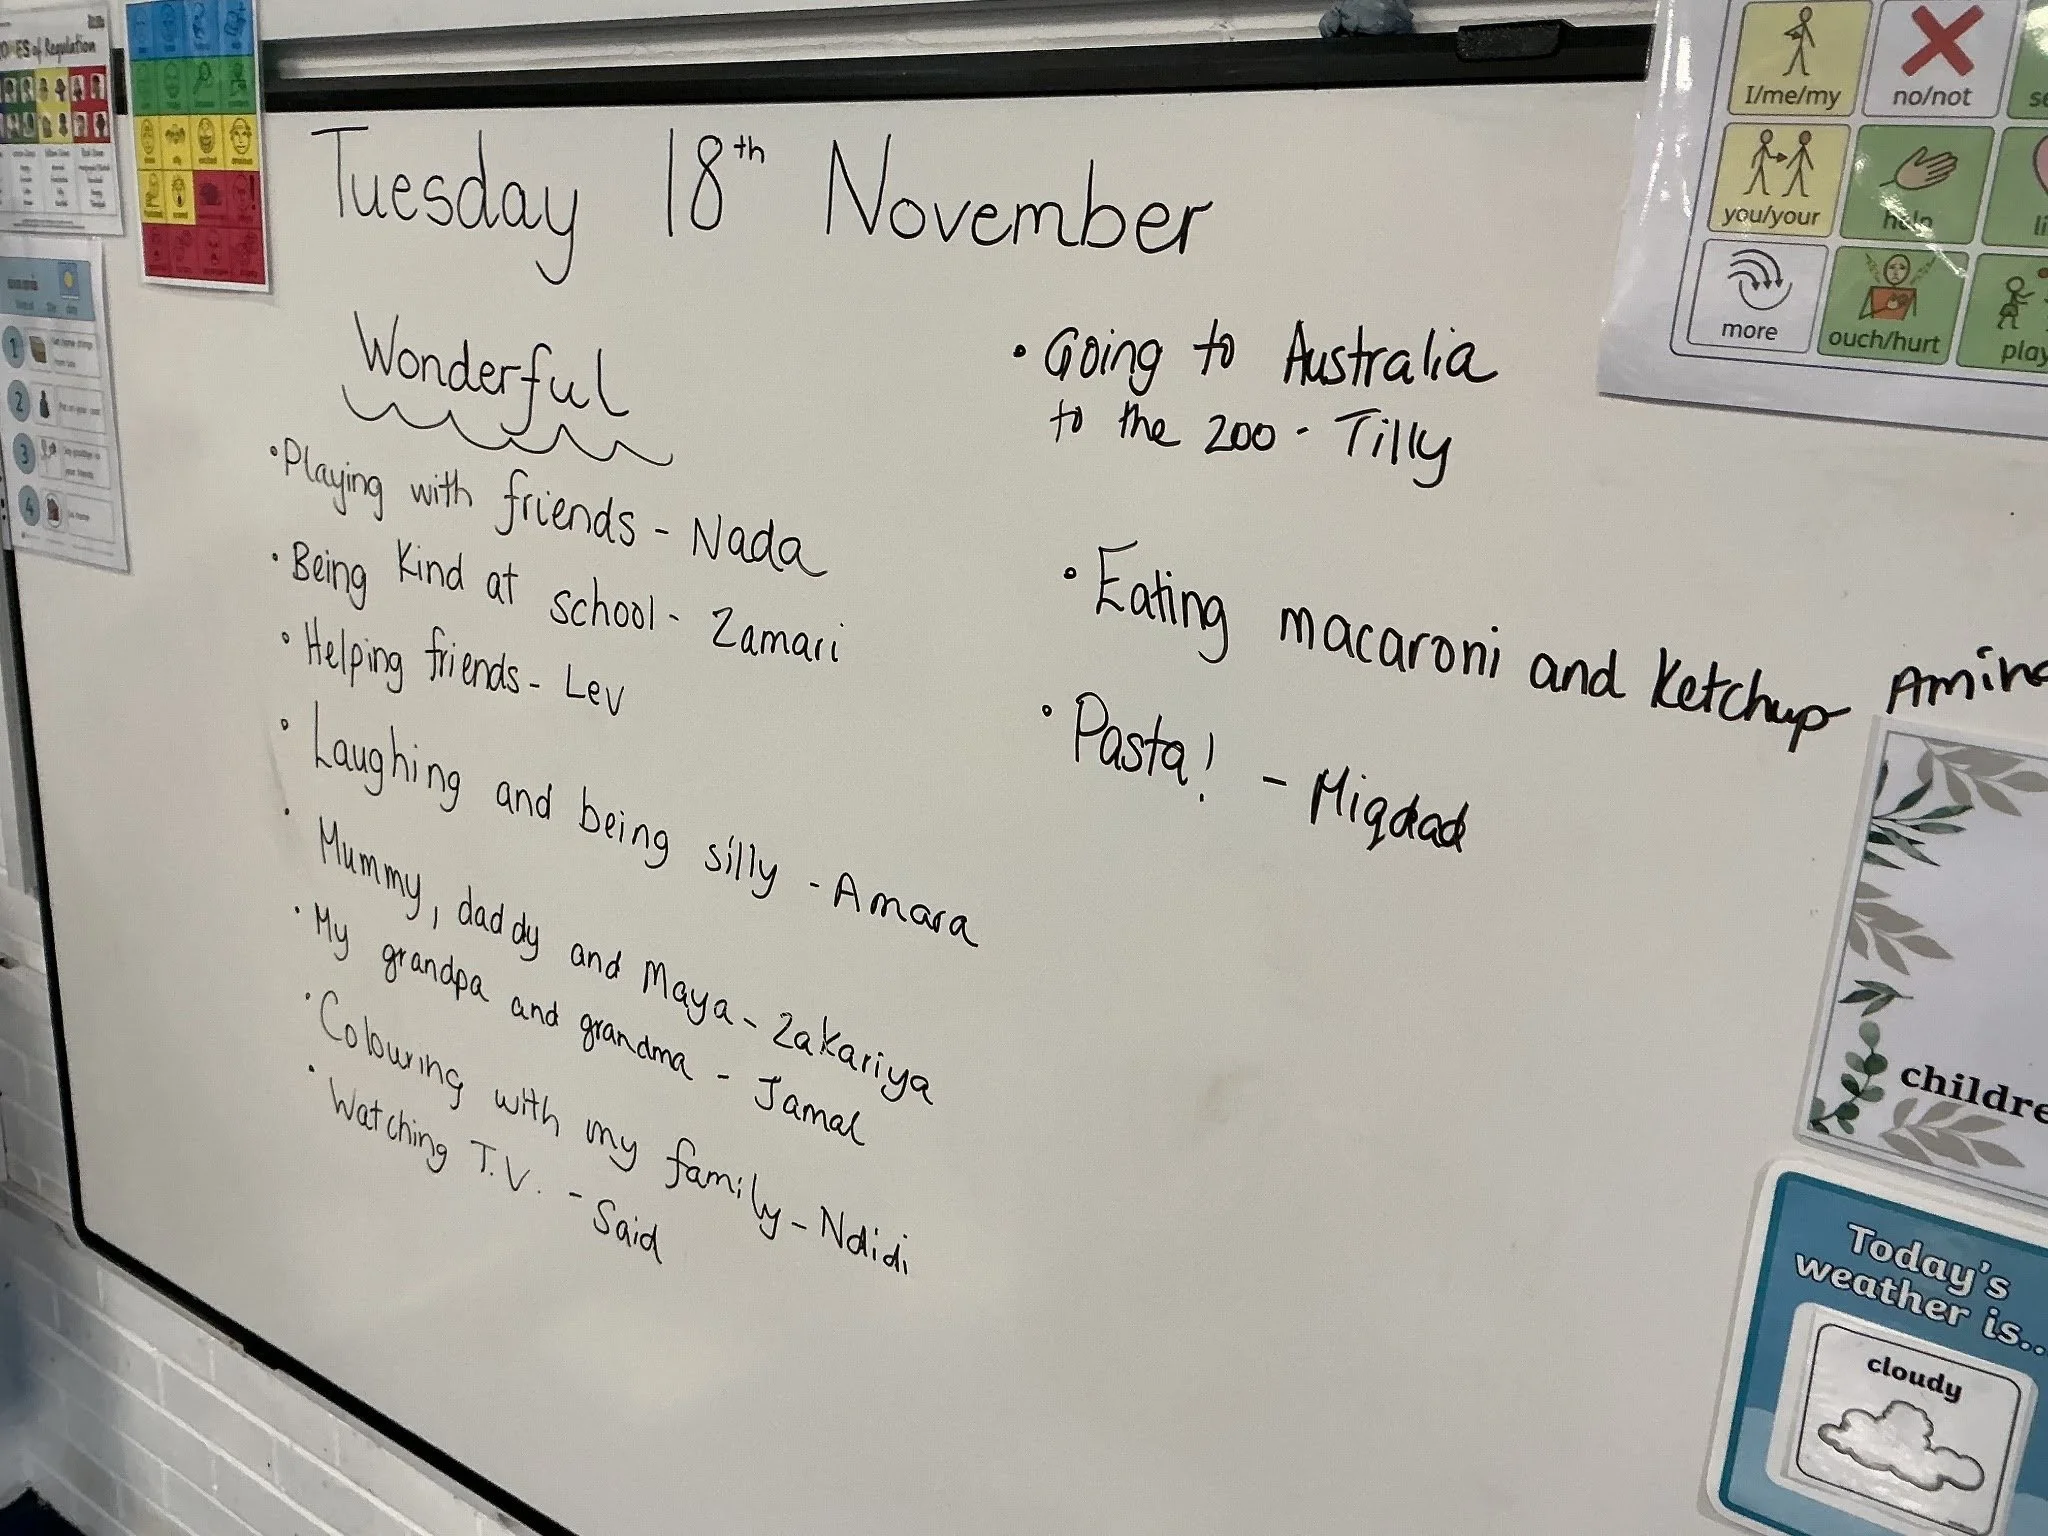 ZONES of Regulation
Tuesday 18th November
Wonderful
• Playing with friends - Nada
• Being kind at school - Zamari
• Helping friends - Lev
• Laughing and being silly - Amara
• Mummy, daddy and Maya - Zakariya
• My grandpa and grandma - Jamal
• Colouring with my family - Ndidi
• Watching T.V. - Said
• Going to Australia
to the zoo - Tilly
• Eating macaroni and ketchup Amin
• Pasta! - Miqdad
I/me/my
no/not
you/your
help
more
ouch/hurt
play
1
2
3
4
childre
Today's
weather is..
cloudy